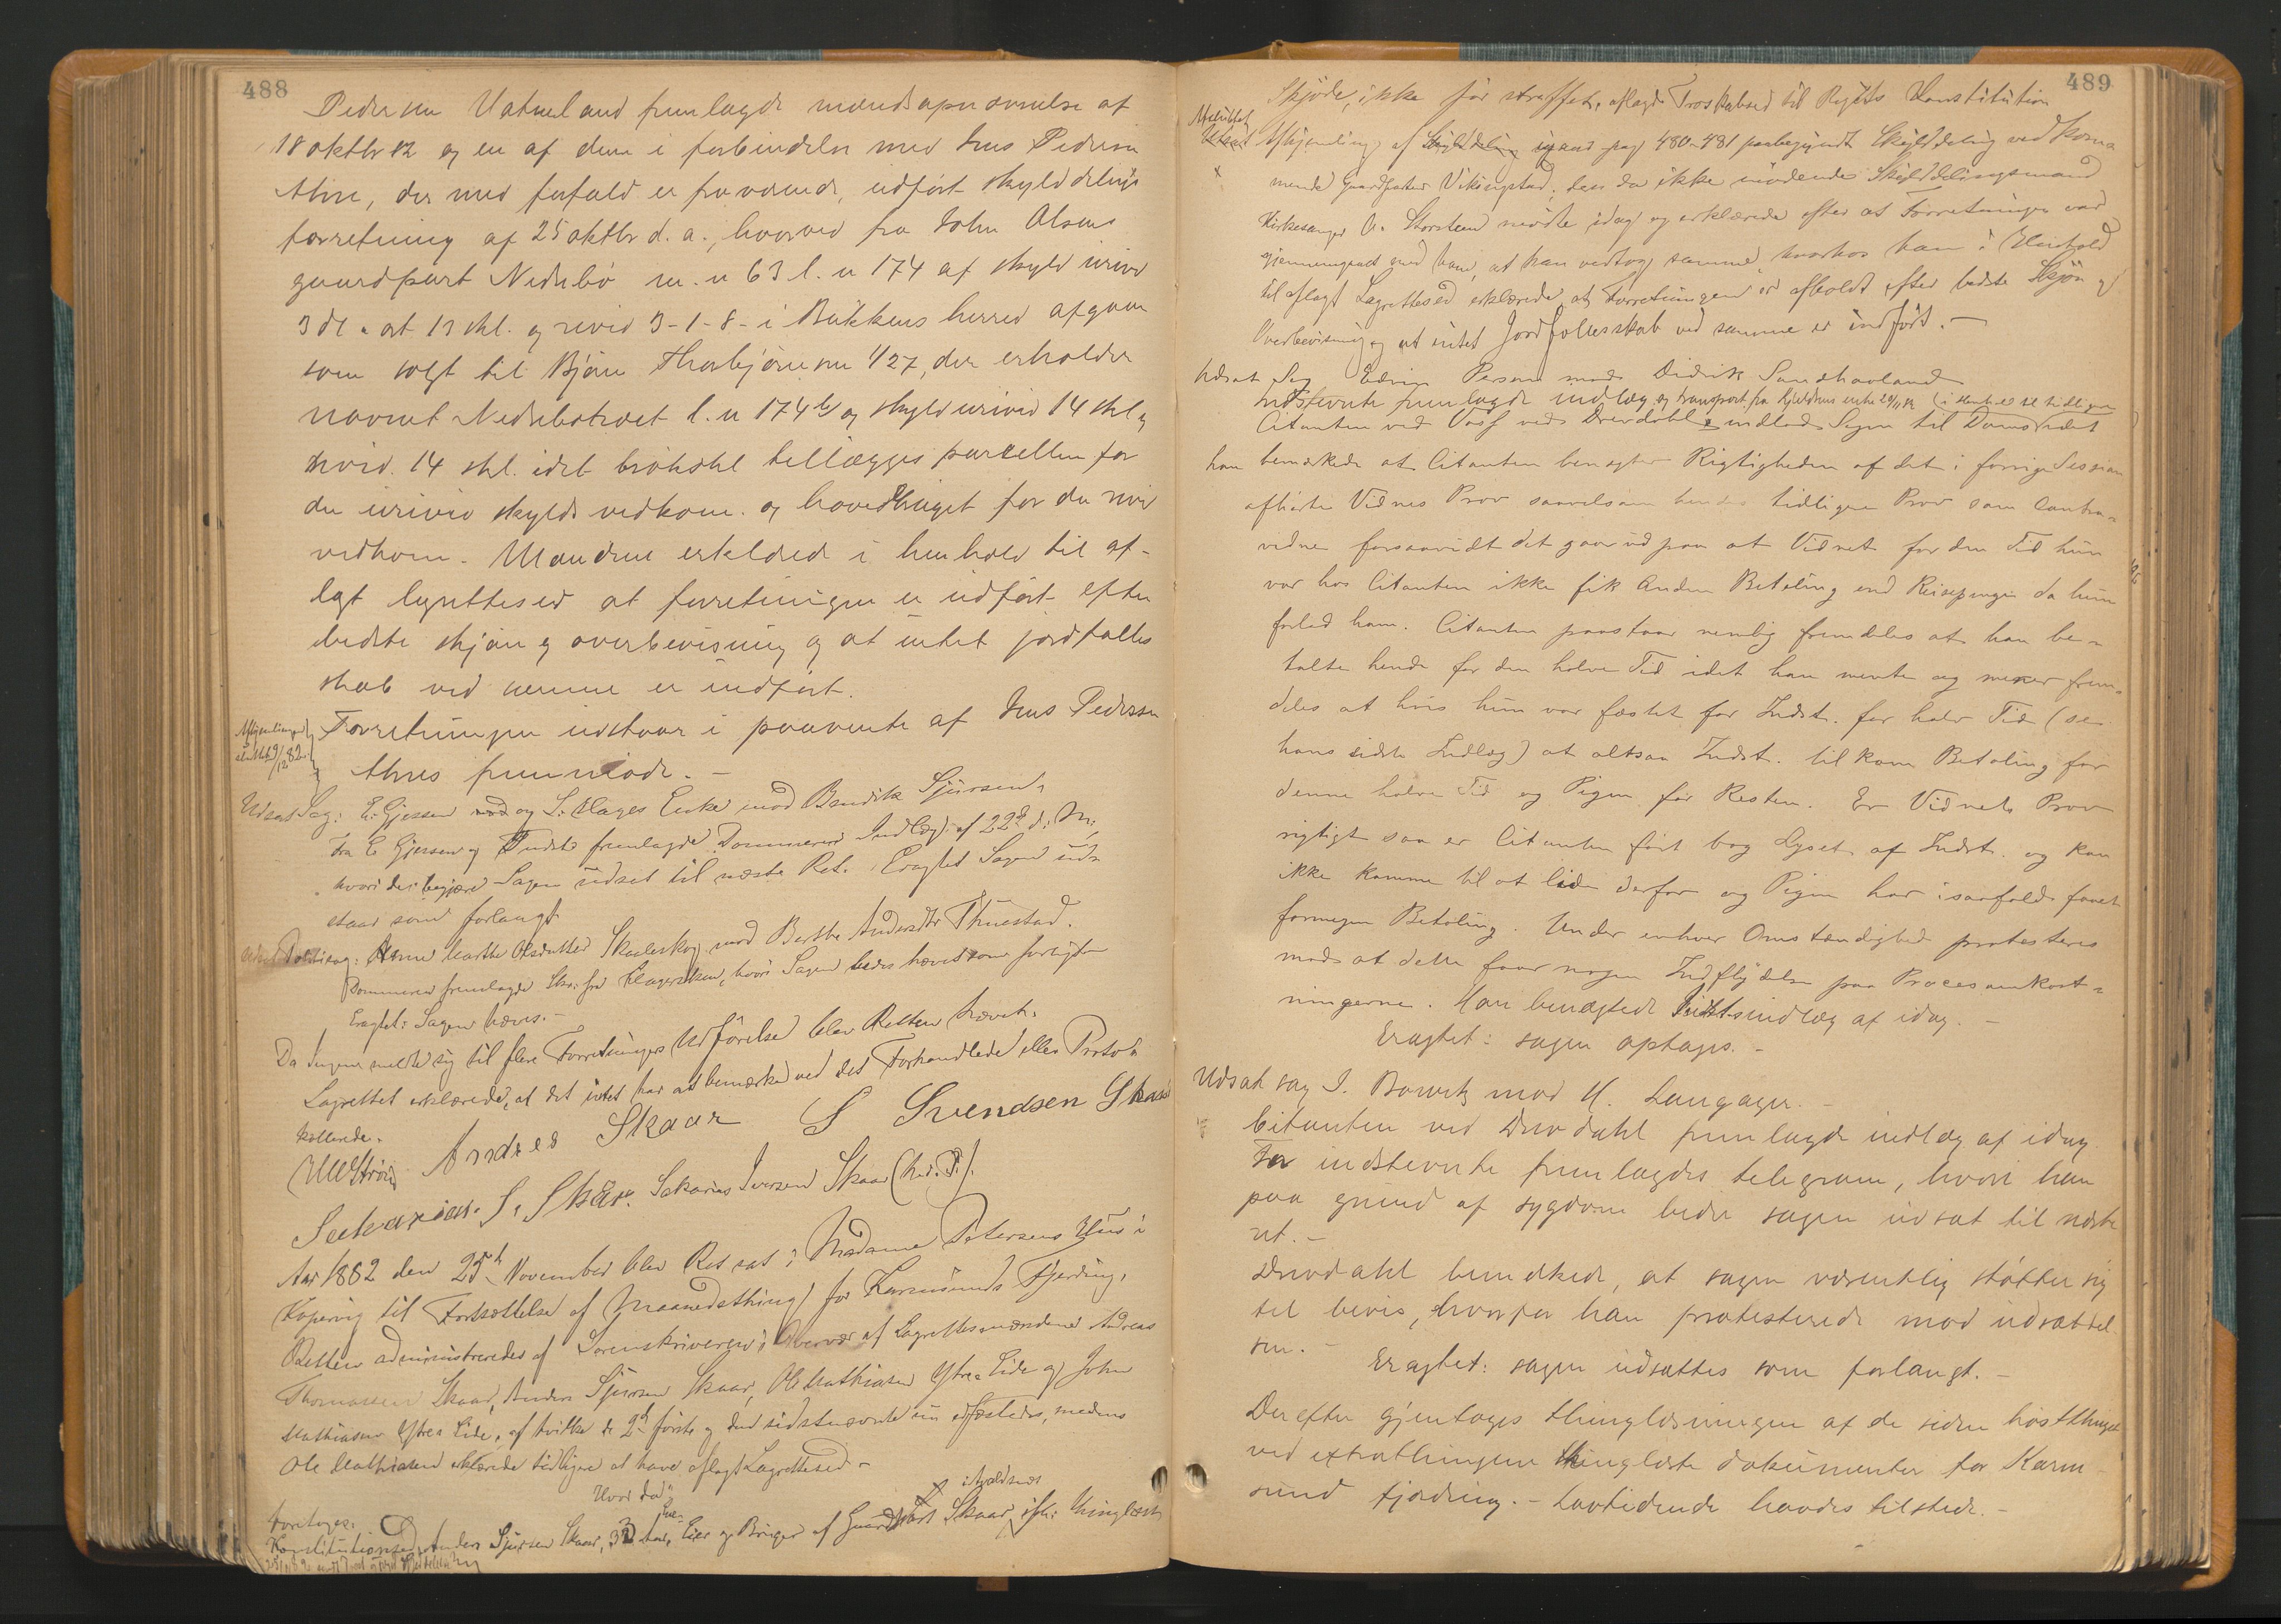 488
Pedersen Vatneland fremlagde mændsopnævnelse af
18 oktbr 82 og en af dem i forbindelse med Jens Pedersen
Ahre, der med forfald er fraværende, udført skylddelings
forretning af 25 oktbr d. a., hvorved fra John Olsens
gaardpart Nedrebö m. n 63 l. n 174 af skyld urevid
3 dl. ort 13 skl. og revid 3-1-8- i Bukkens herred afgaar
som solgt til Björn Thorbjörnsen 1/27, der erholder
navnet Nedrebötræet l. n 174 b og skyld urevid 14 skl og
revid. 14 skl. idet brökskl tillægges parcellen for
den urevid skylds vedkom. og hovedbruget for den revid
vedkom. Mændene erklæred i henhold til af-
lagt lagrettesed at forretningen er udført efter
bedste skjön og overbevisning og at intet jordfælles
skab ved samme er indført.
Afhjemlingen sluttet 9/12 82.
Forretningen udstaar i paavente af Jens Pedersen
Ahres fremmöde. -
Udsat Sag: E. Gjessen mod og S. Hages Enke mod Bendik Sjursen.
Fra E. Gjessen og Indst. fremlagde Dommeren Indlæg af 22de d. M.
hvori de begjære Sagen udsat til næste Ret. Eragtet Sagen ud-
staar som forlangt.
Udsat Politisag: Anne Marthe Olsdatter Skaaleskog mod Berthe Andersdtr Thuestad.
Dommeren fremlagde Skr. fra Klagersken, hvori Sagen bedes hævet som forligt.
Eragtet: Sagen hæves. -
Da Ingen meldte sig til flere Forretningers Udförelse blev Retten hævet.
Lagrettet erklærede, at det intet har at bemærke ved det Forhandlede eller Proto-
kollerede.
Andres Skaar S Svendsen Skaar
Sakarias. I. Skaar. Sakarias Iversen Skaar (m. i. P.).
Aar 1882 den 25de November blev Ret sat i Madame Petersens Hus i
Kopervig til Fortsættelse af Maanedsthing for Karmsunds Fjerding.
Retten administreredes af Sorenskriveren i Overvær af Lagrettesmændene Andreas
Thomassen Skaar, Anders Sjursen Skaar, Ole Mathiasen Ytre-Eide og John
Mathiasen Ytre-Eide, af hvilke de 2de förste og den sidstnævnte nu edfæstedes, medens
Ole Mathiasen erklærede tidligere at have aflagt Lagrettesed -
Hvor da
foretoges:
Konstitutionsed. Anders Sjursen Skaar, 32 Aar, Eier og Bruger af Gaardpart Skaar i Avaldsnæs ifl. thinglæst
489
Skjöde, ikke før straffet, aflagde Troskabsed til Rigets Konstitution
Afsluttet
Udsat Afhjemling af Skylddeling igaar pag 480-481 paabegyndt Skylddeling vedkom-
mende Gaardparten Vikingstad. Den da ikke mödende Skylddelingsmand
Kirkesanger O. Storsteen mödte idag og erklærede efter at Forretningen var
gjennemgaaet med ham, at han vedtog samme, hvorhos han i Henhold
til aflagt Lagrettesed erklærede, at Forretningen er afholdt efter bedste Skjön og
Overbevisning og at intet Jordfællesskab ved samme er indført. -
Udsat Sag Edvin Persen mod Didrik Sandhaaland
Indstevnte fremlagde indlæg og transport fra Kjeldrens enke 24/11 82 (i henhold til tidligere
Citanten ved Voss ved Drevdahl indlod Sagen til Doms idet
han bemærkede at Citanten benægter Rigtigheden af det i forrige Session
afhörte Vidnes Prov saavelsom hendes tidligere Prov som Contra-
vidne forsaavidt det gaar ud paa at Vidnet for den Tid hun
var hos Citanten ikke fik Anden Betaling end Reisepenge da hun
forlod ham. Citanten paastaar nemlig fremdeles at han be-
talte hende for den halve Tid idet han mente og mener frem-
deles at hvis hun var fæstet for Indst. for halv Tid (se
hans sidste Indlæg) at altsaa Indst. tilkom Betaling for
denne halve Tid og Pigen for Resten. Er Vidnets Prov
rigtigt saa er Citanten fört bag Lyset af Indst. og kan
ikke komme til at lide derfor og Pigen har isaafald faaet
formegen Betaling. Under enhver Omstændighed protesteres
mod at dette faar nogen Indflydelse paa Procesomkost-
ningerne. Han benægtede Indstsindlæg af idag. -
Eragtet: sagen optages. -
Udsat sag I. Bowitz mod H. Langager. -
Citanten ved Drevdahl fremlagde indlæg af idag.
For indstevnte fremlagdes telegram, hvori han
paa grund af sygdom beder sagen udsat til næste
ret. -
Drevdahl bemærkede, at sagen væsentlig støtter sig
til bevis, hvorfor han protesterede mod udsættel-
sen. -
Eragtet: sagen udsættes som forlangt. -
Derefter gjentoges thinglæsningen af de siden høstthinget
ved extrathingene thinglæste dokumenter for Karm-
sund fjerding. - Lovtidende havdes tilstede. -